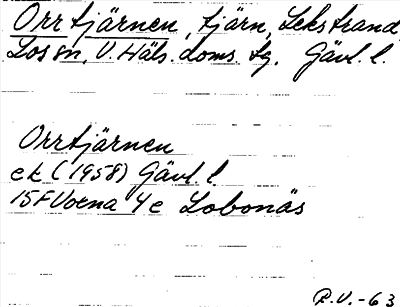 Orrtjärnen, tjärn, Lekstrand
Los sn, V. Häls. doms. tg. Gävl. l.
Orrtjärnen
ek (1958) Gävl. l.
15F Voxna 4e Lobonäs
R.V.-63